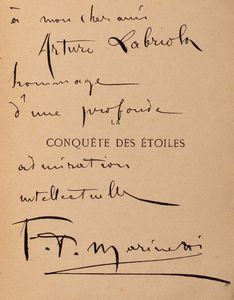 à mon cher ami
Arturo Labriola
hommage
d'une profonde
LA
CONQUÊTE DES ÉTOILES
admiration
intellectuelle
F. T. Marinetti